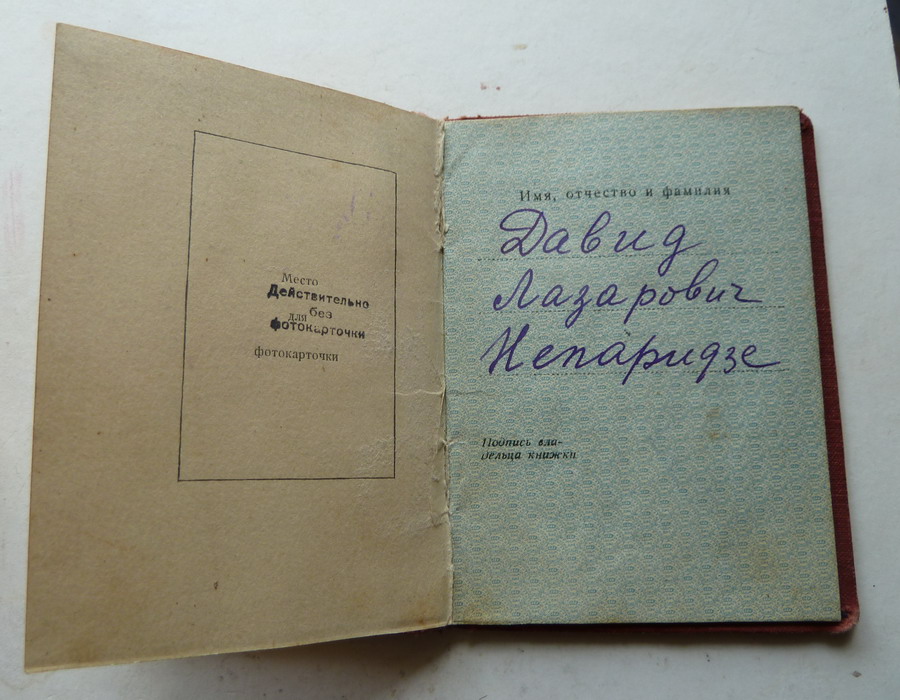 Место
Действительно
для без
фотокарточки
фотокарточки
Имя, отчество и фамилия
Давид
Лазарович
Непаридзе
Подпись вла-
дельца книжки